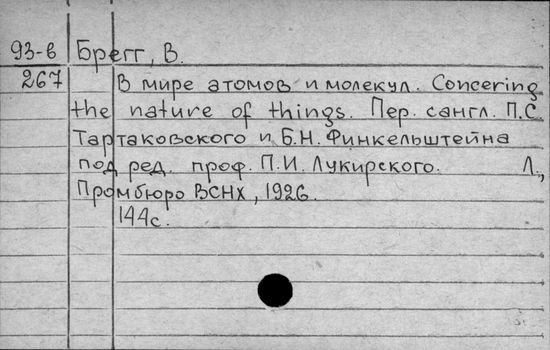 93-6 Брегг, В.
267 В мире атомов и молекул. Concering
the nature of things. Пер. сангл. П.С.
Тартаковского и Б.Н. Финкельштейна
под ред. проф. П.И. Лукирского. Л.,
Промбюро ВСНХ, 1926.
144с.